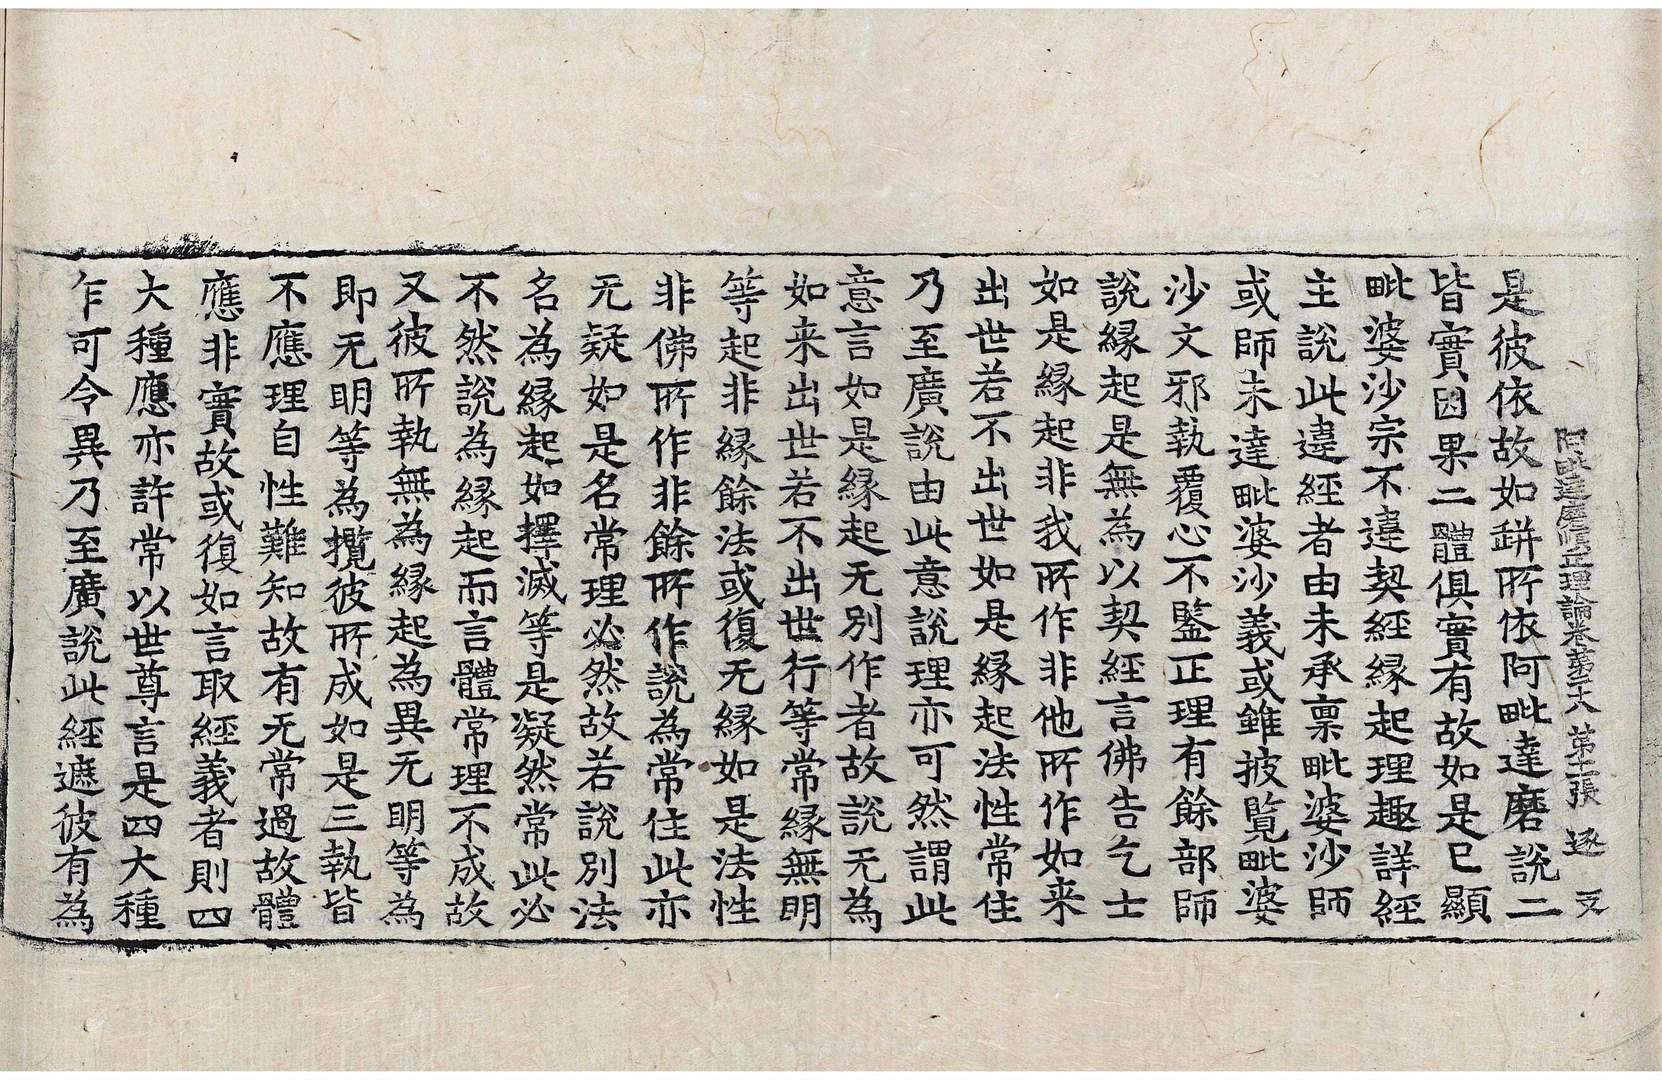 阿毗達磨順正理論卷第二十八 第十張 逐 支
是彼依故如缾所依阿毗達磨說二
皆實因果二體俱實有故如是已顯
毗婆沙宗不違契經緣起理趣詳經
主說此違經者由未承稟毗婆沙師
或師未達毗婆沙義或雖披覽毗婆
沙文邪執覆心不鑒正理有餘部師
說緣起是無為以契經言佛告乞士
如是緣起非我所作非他所作如来
出世若不出世如是緣起法性常住
乃至廣說由此意說理亦可然謂此
意言如是緣起无別作者故說无為
如来出世若不出世行等常緣無明
等起非緣餘法或復无緣如是法性
非佛所作非餘所作說為常住此亦
无疑如是名常理必然故若說別法
名為緣起如擇滅等是凝然常此必
不然說為緣起而言體常理不成故
又彼所執無為緣起為異无明等為
即无明等為攬彼所成如是三執皆
不應理自性難知故有无常過故體
應非實故或復如言取經義者則四
大種應亦許常以世尊言是四大種
乍可令異乃至廣說此經遮彼有為